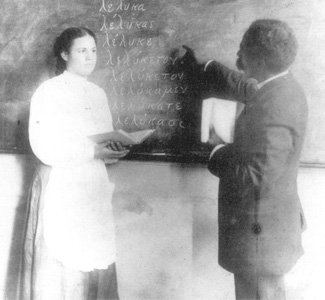 λέλυκα
λέλυκας
λέλυκε
λελύκετον
λελύκετον
λελύκαμεν
λελύκατε
λελύκασι